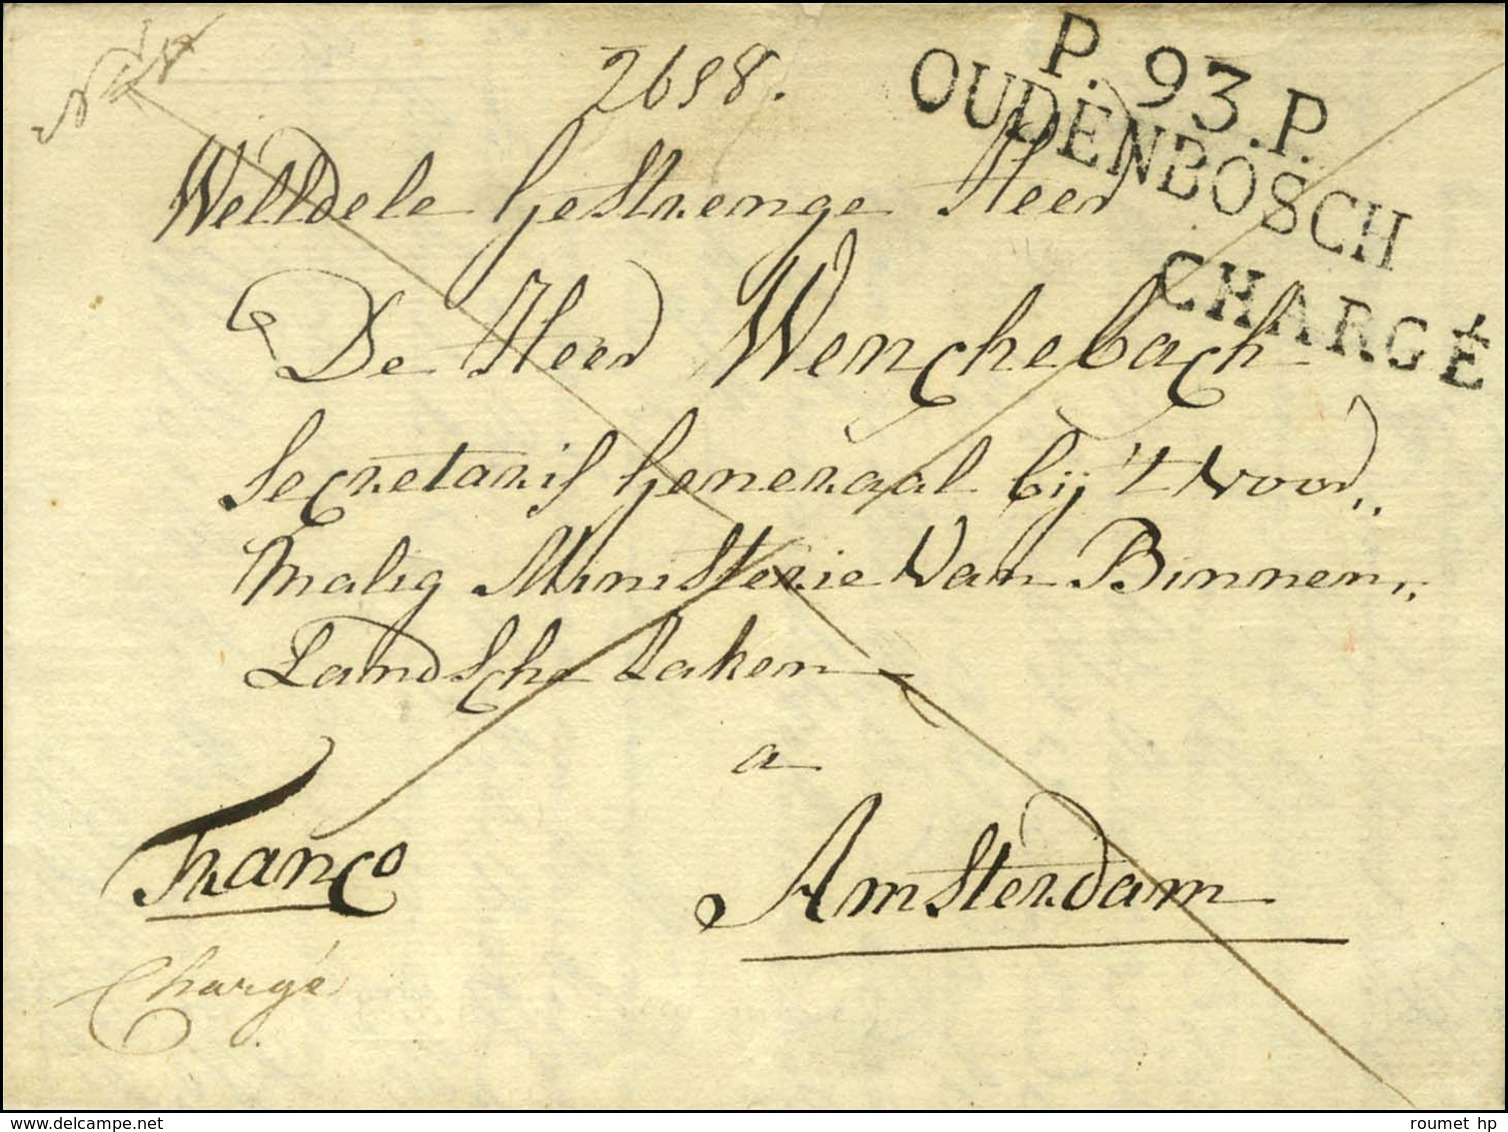 2698.
P. 93. P.
OUDENBOSCH
CHARGÉ
WelEdele Gestrenge Heer
De Heer Wenchebach
Secretaris Generaal bij 't voor,,
malig Ministerie Van Binnen,,
Landsche Zaken
a
Amsterdam
Franco
Chargé
www.delcampe.net
roumet hp